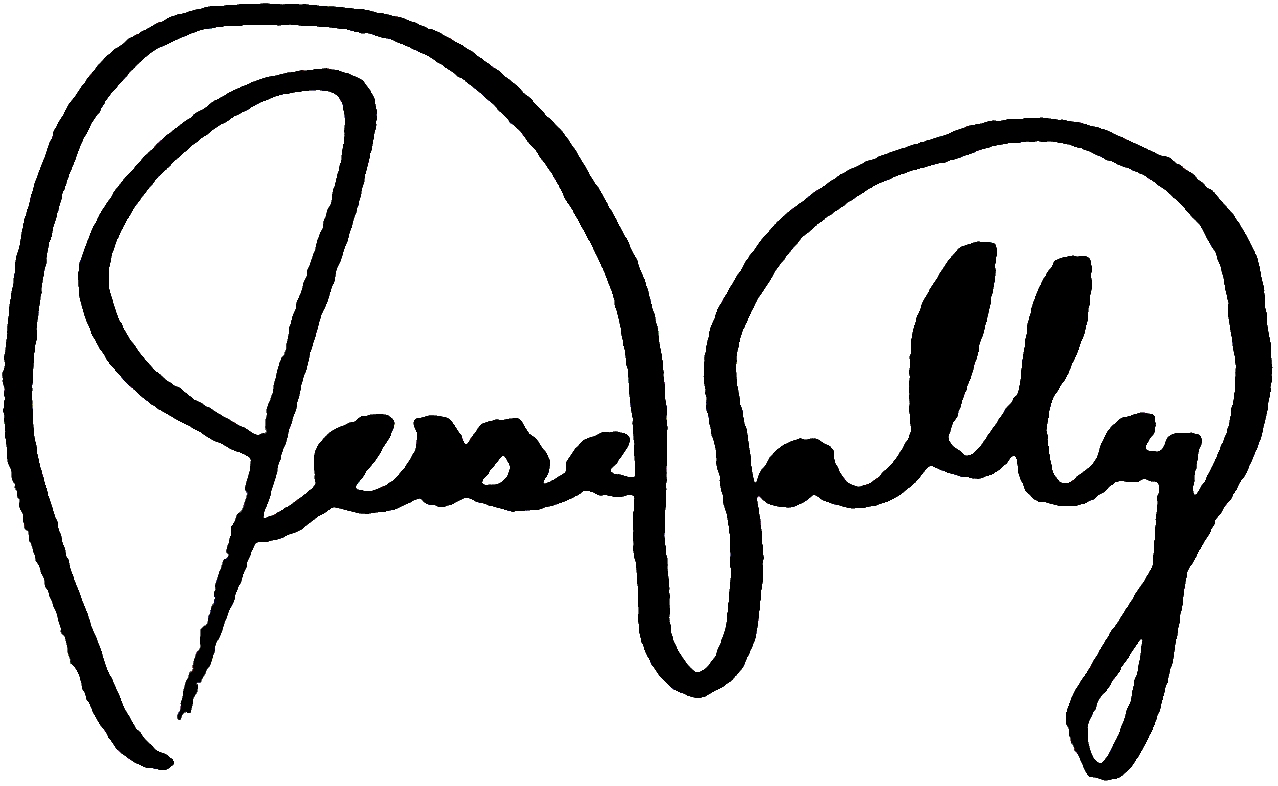 Jesse Valley